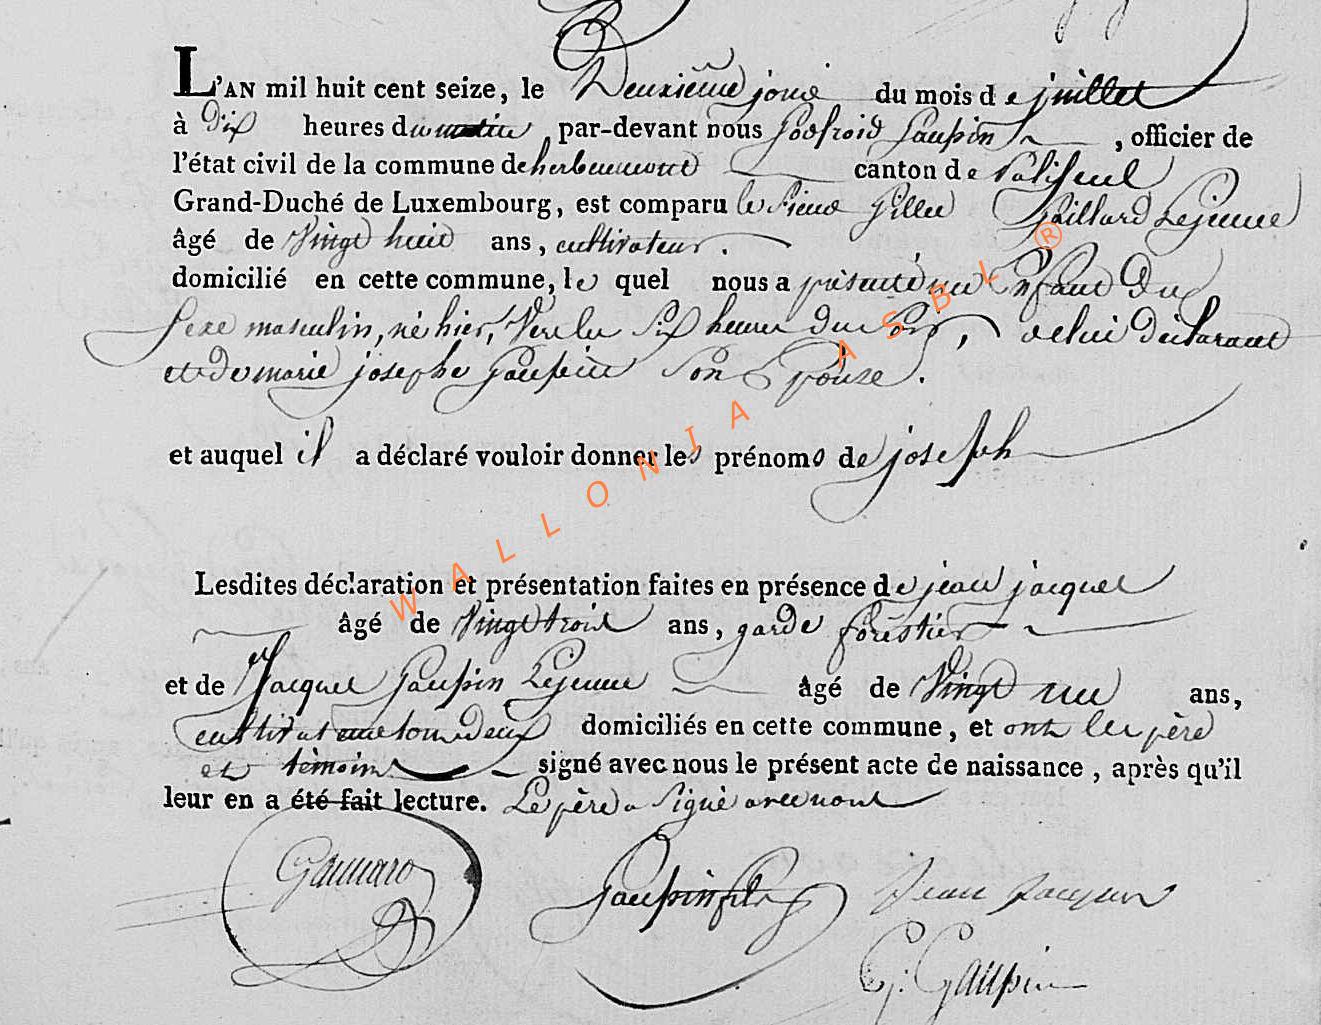 L'AN mil huit cent seize, le Deuxième jour du mois de juillet
à Dix heures du matin, par-devant nous Godfroid Gaupin, officier de
l'état civil de la commune de herbeumont canton de Paliseul
Grand-Duché de Luxembourg, est comparu le Sieur Gilles Gaillard Lejeune
âgé de Vingt huit ans, cultivateur.
domicilié en cette commune, le quel nous a présenté un Enfant Du
Sexe masculin, né hier, Vers les Six heures du Soir, de lui déclarant
et de marie josephe Gaupin Son Epouze.
et auquel il a déclaré vouloir donner les prénoms de joseph
Lesdites déclaration et présentation faites en présence de jean jacques
âgé de Vingt trois ans, garde forestier
et de Jacques Gaupin Lejeune âgé de Vingt un ans,
cultivateur tous deux domiciliés en cette commune, et ont les père
et témoins signé avec nous le présent acte de naissance, après qu'il
leur en a été fait lecture. Le père a Signé avec nous
Gaupin fils Jean Jacques
G. Gaupin
WALLONIA ASBL ®